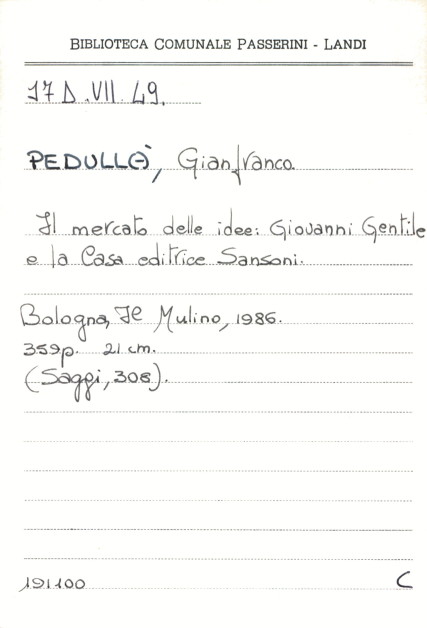 BIBLIOTECA COMUNALE PASSERINI - LANDI
17 D.VII.49.
PEDULLÀ, Gianfranco
Il mercato delle idee: Giovanni Gentile
e la Casa editrice Sansoni.
Bologna, Il Mulino, 1986.
359p. 21 cm.
(Saggi, 308).
191100
C